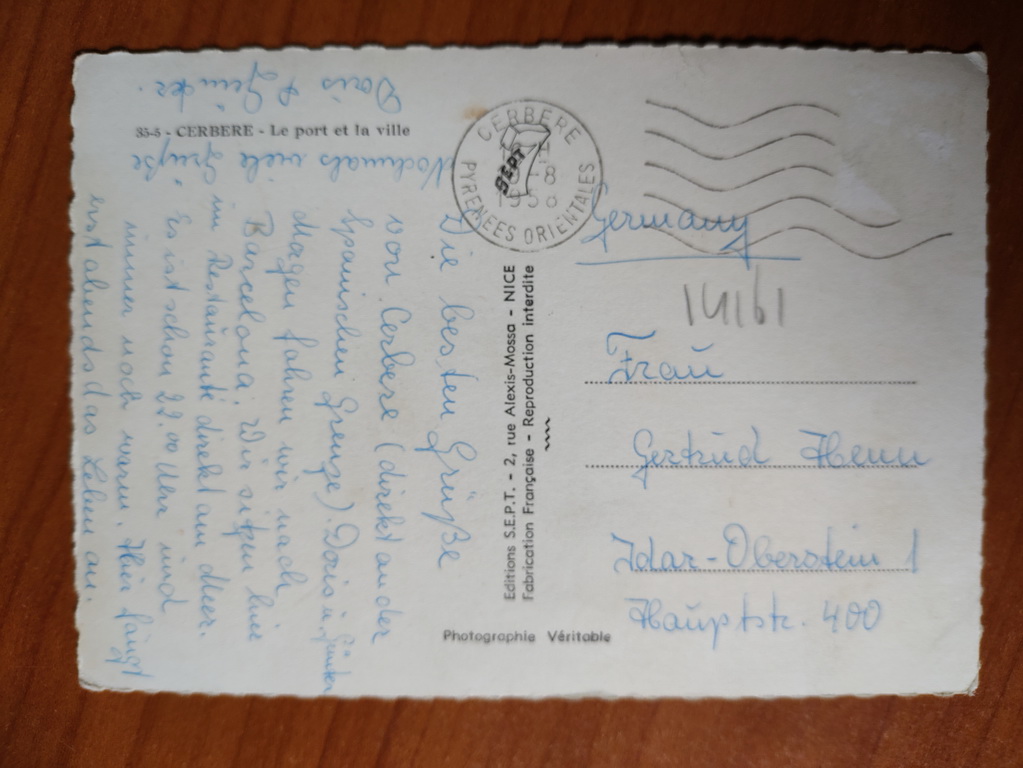 35-5 - CERBERE - Le port et la ville
Die besten Grüße
von Cerbere (direkt an der
spanischen Grenze). Doris u. Günter
Morgen fahren wir nach
Barcelona. Wir sitzen hier
im Restaurant direkt am Meer.
Es ist schon 22.00 Uhr und
immer noch warm. Hier fängt
erst abends das Leben an.
Nochmals viele Grüße
Doris & Günter.
Editions S.E.P.T. - 2, rue Alexis-Mossa - NICE
Fabrication Française - Reproduction interdite
SEPT
Photographie Véritable
CERBERE
-8
1958
PYRENEES ORIENTALES
Germany
14161
Frau
Gertrud Henn
Idar-Oberstein 1
Hauptstr. 400